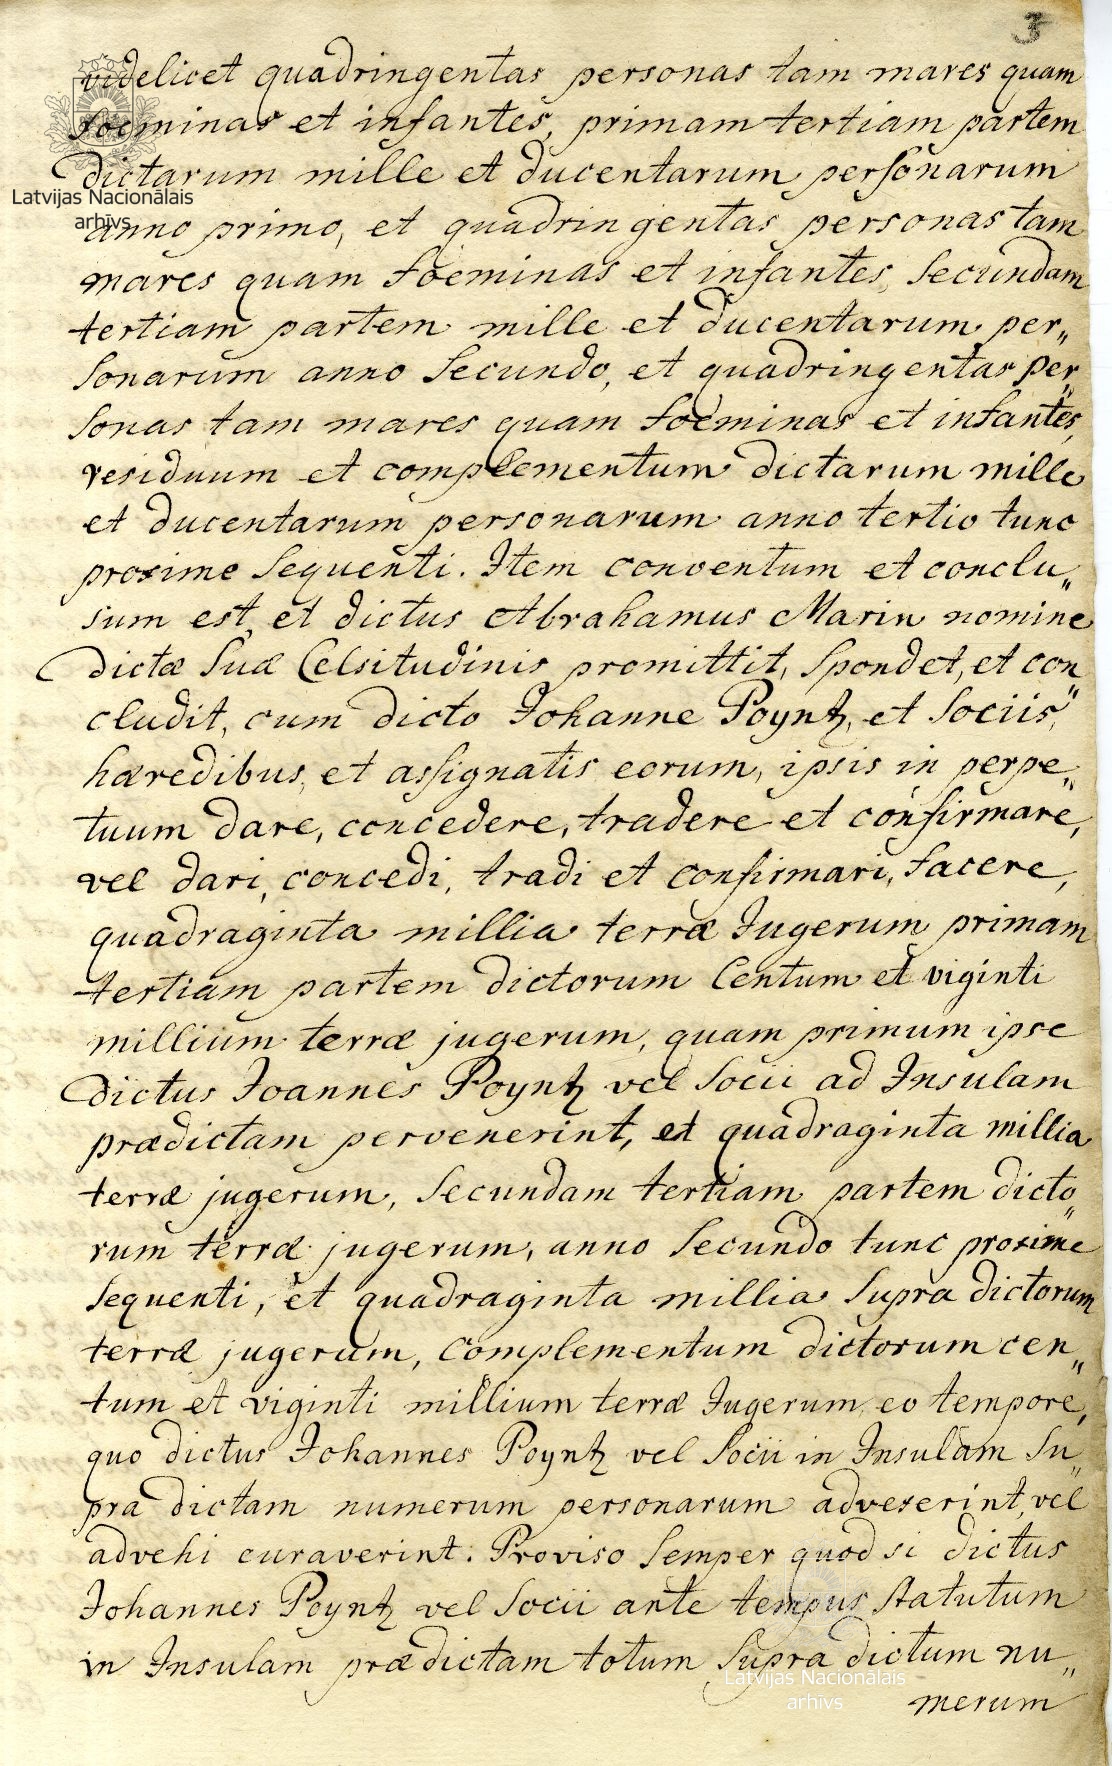 3
videlicet quadringentas personas tam mares quam
foeminas et infantes, primam tertiam partem
dictarum mille et ducentarum personarum
Latvijas Nacionālais
arhīvs
anno primo, et quadringentas personas tam
mares quam foeminas et infantes, Secundam
tertiam partem mille et ducentarum per„
Sonarum anno Secundo, et quadringentas per„
Sonas tam mares quam foeminas et infantes,
residuum et complementum dictarum mille
et ducentarum personarum anno tertio tunc
proxime Sequenti. Item conventum et conclu„
sum est, et dictus Abrahamus Marin nomine
dictæ Suæ Celsitudinis promittit, Spondet, et con„
cludit, cum dicto Johanne Poyntz, et Sociis,
hæredibus, et assignatis eorum, ipsis in perpe„
tuum dare, concedere, tradere et confirmare,
vel dari, concedi, tradi et confirmari, facere,
quadraginta millia terræ Jugerum primam
tertiam partem dictorum Centum et viginti
millium terræ jugerum, quam primum ipse
dictus Joannes Poyntz vel Socii ad Insulam
prædictam pervenerint, et quadraginta millia
terræ jugerum, Secundam tertiam partem dicto„
rum terræ jugerum, anno Secundo tunc proxime
Sequenti, et quadraginta millia Supra dictorum
terræ jugerum, Complementum dictorum cen„
tum et viginti millium terræ Jugerum, eo tempore,
quo dictus Johannes Poyntz vel Socii in Insulam Su„
pra dictam numerum personarum advexerint, vel
advehi curaverint. Proviso Semper quod si dictus
Johannes Poyntz vel Socii ante tempus Statutum
in Insulam prædictam totum Supra dictum nu„
Latvijas Nacionālais
arhīvs
merum